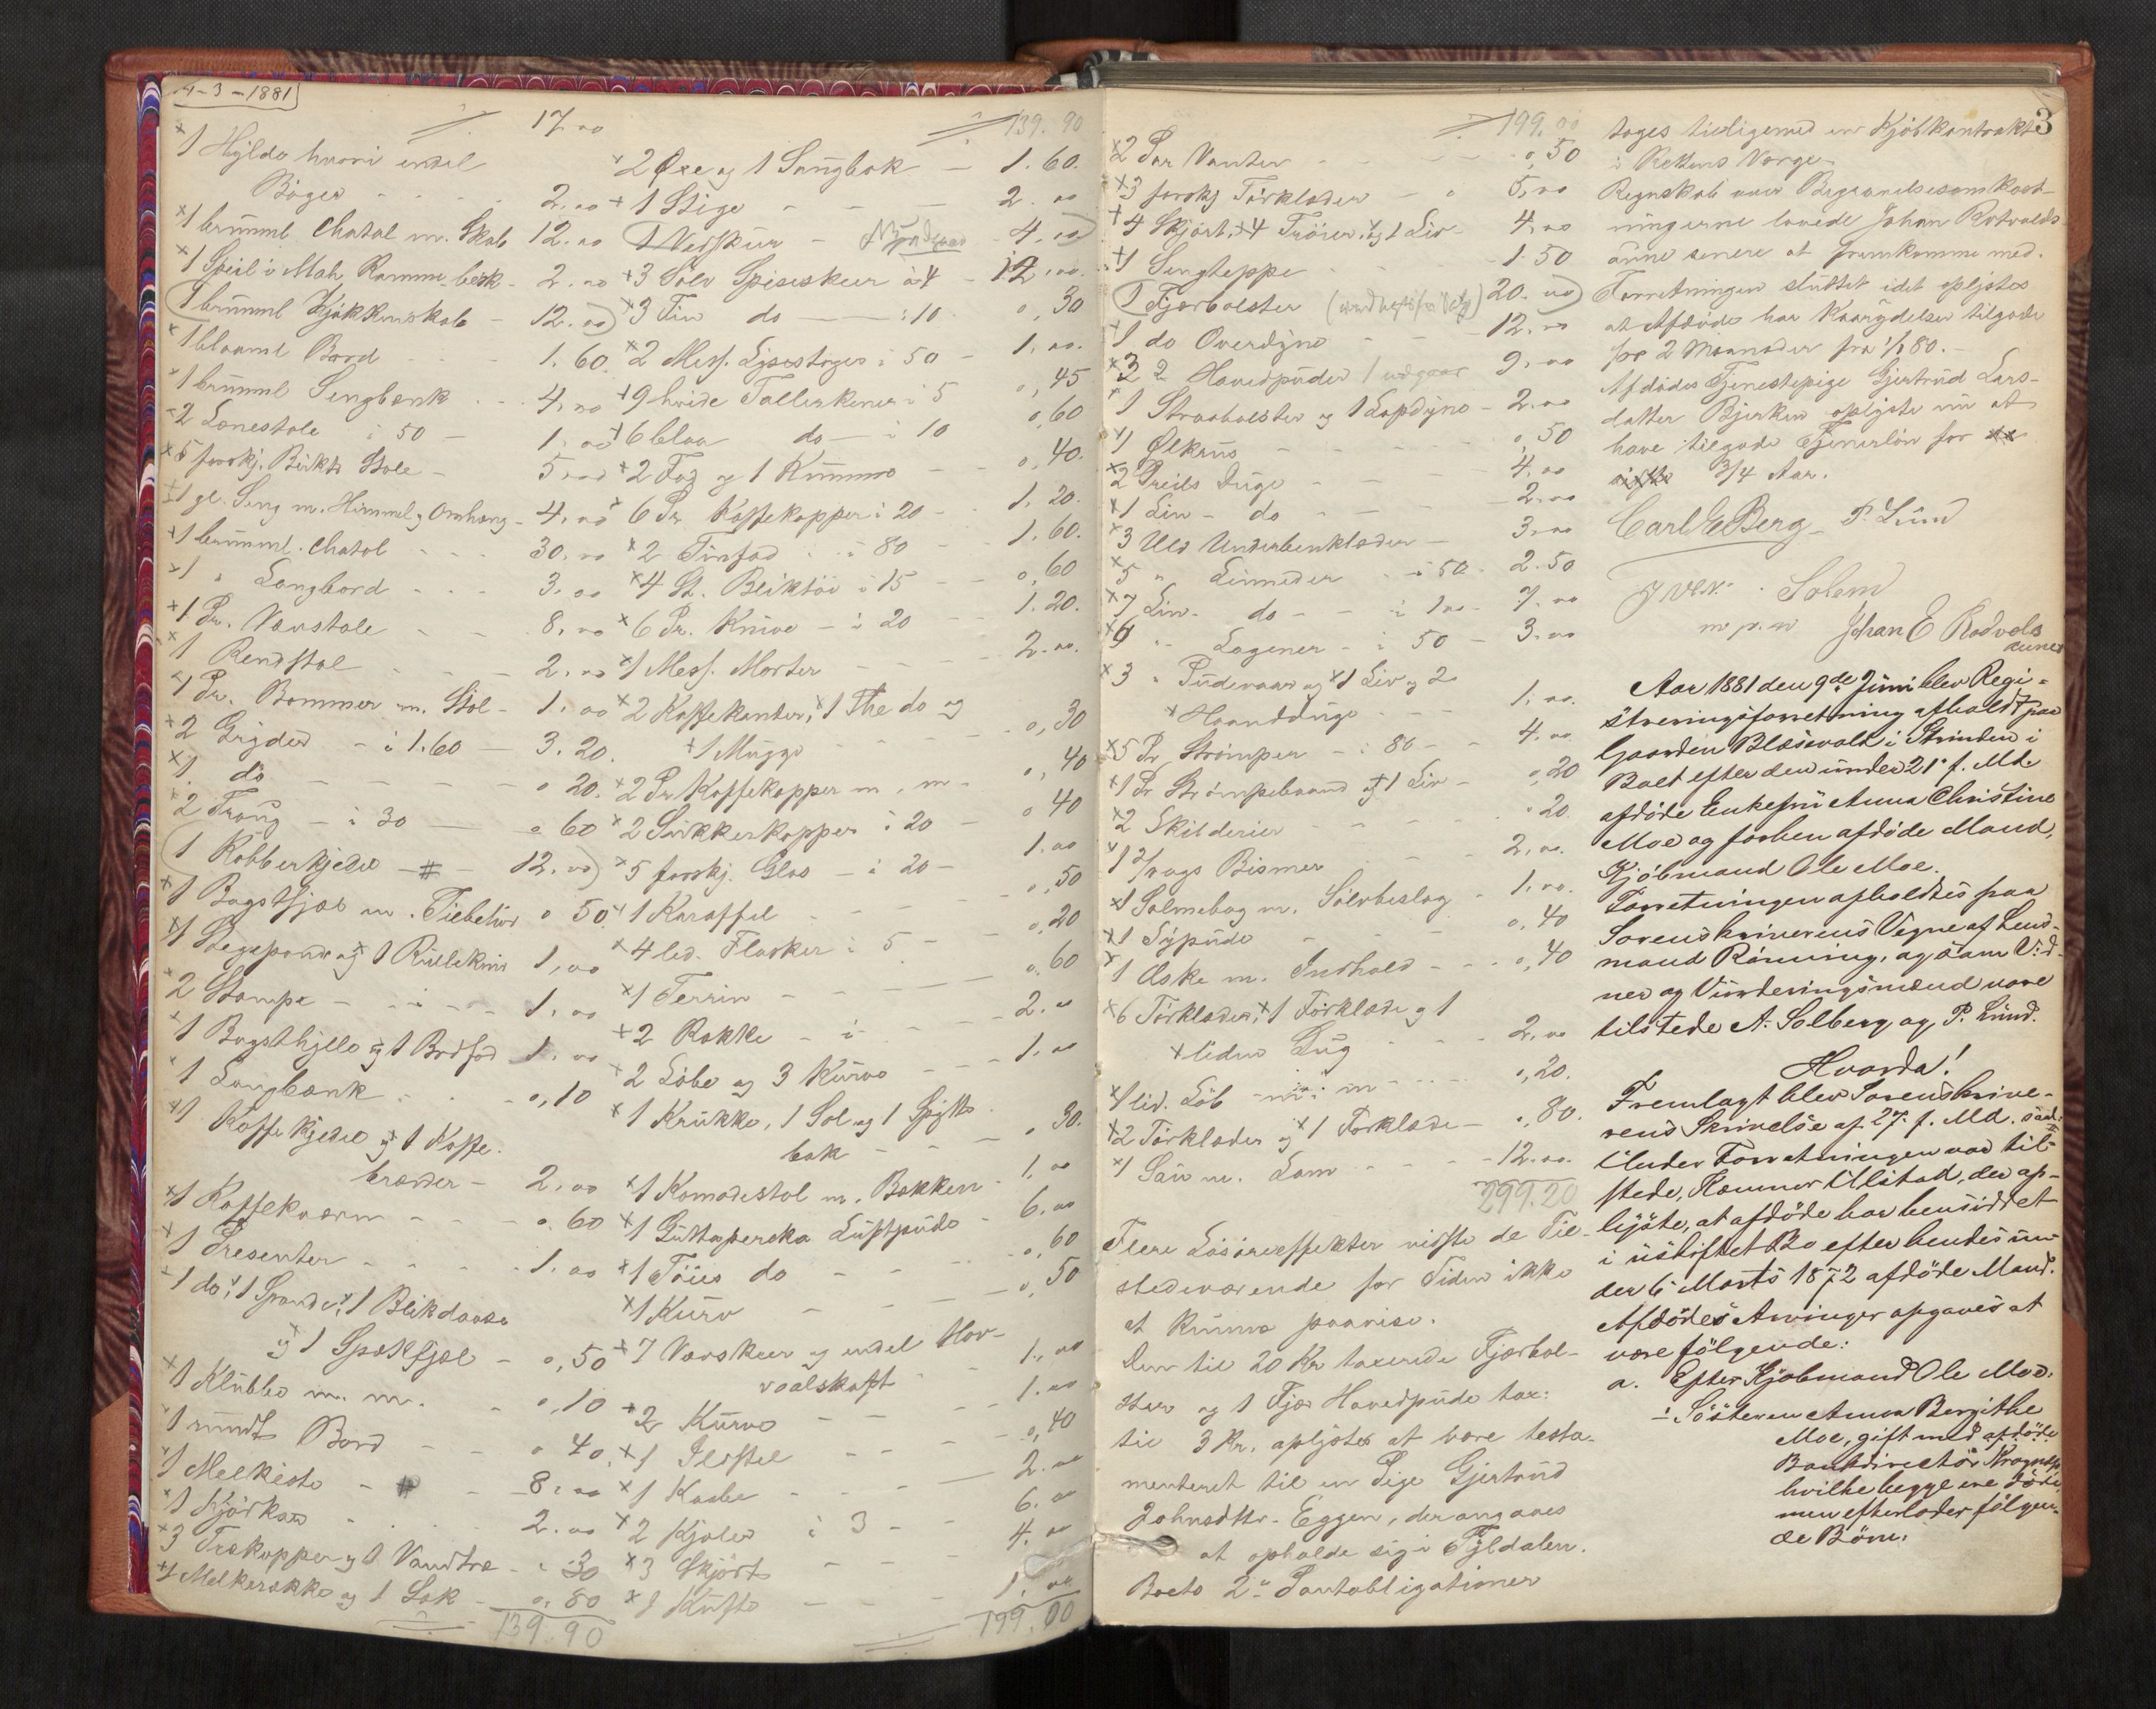 4-3-1881
17.00
×1 Hylde hvori endel
Bøger - - - 2.00
×1 brunml Chatol m. Skab 12.00
×1 Speil i Mah Ramme besk - 2.00
(1 brunml Kjøkkenskab - 12.00)
×1 blaaml Bord - - - 1.60.
×1 brunml Sengbænk - - 4.00
×2 Lænestole à 50 - 1.00
×5 forskj. Birkte Stole - 5.00
×1 gl. Seng m. Himmel og Omhæng - 4.00
×1 brunml. Chatol - - - 30.00
×1 " Langbord - - - 3.00
×1 Pr. Vævstole - - 8.00
×1 Rendstol - - - 2.00
×1 Pr. Bommer m. Stol - 1.00
×2 Gryder - à 1.60 - 3.20.
×1 do - - - - - 0 20.
×2 Traug - à 30 - 0 60
(1 Kobberkjedel - # - 12.00)
×1 Bagstfjæl m. Tilbehør 0 50
×1 Stegepande og ×1 Rullekniv 1,00
×2 Stampe - - - - 1.00
×1 Bagsthylle og 1 Brødfad 1.00
×1 Langbænk - - - 0,10
×1 Kaffekjedel og ×1 Kaffe-
brænder - 2.00
×1 Kaffekværn - - - 0.60
×1 Presenter - - - - 1.00
×1 do, ×1 Spand, ×1 Blikdaase
og ×1 Spækfjæl - 0,50
×1 Klubbe m. m. - 0,10
×1 rundt Bord - - 0 40.
×1 Melkiste - # - 8.00
×1 Kjørkar - - - 2.00
×3 Trækopper og 1 Vandtræ - - 30
×4 Melkerække og 1 Sæk - 0.80
139.90
139.90
×2 Øxe og 1 Sangbok - 1.60.
×1 Stige - - - 2.00
(1 Vedskur - - 4.00)
×3 Sølv Spiseskeer à 4 - 12.00
×3 Tin do - à 10 0,30
×2 Mess. Lysestager à 50 - 1.00.
×9 hvide Tallerkener à 5 0,45
×6 blaa do - à 10 0,60
×2 Fad og 1 Kumme - - 0,40.
×6 Pr Kaffekopper à 20 - 1.20.
×2 Tinfad - - à 80 - 1.60.
×4 St. Bliktøi à 15 - - 0,60
×6 Pr. Knive - à 20 - - 1.20.
×1 Mess. Morter - - - - 2.00.
×2 Kaffekander, ×1 The do og
×1 Mugge - - - - 0,30
×2 Pr Kaffekopper m. m - 0,40
×2 Sukkerkopper à 20 - 0 40
×5 forskj. Glas - à 20 - 1.00
×1 Karaffel - - - - 0,50
×4 led. Flasker à 5 - 0,20
×1 Terrin - - - - 0.60
×2 Rokke - à - - - 2.00
×2 Løbe og 3 Kurve - - 1.00
×1 Krukke, 1 Sol og 1 Spytte-
bak - - - 0 30.
×1 Komodestol m. Bækken - 1.00
×1 Guttapercka Luftpude - 6.00
×1 Tøies do - - - 0,60
×1 Kurv - - - 0,50
×7 Vævskeer og endel Hov-
voalskaft - 1.00
×2 Kurve - - 1.00
×1 Ilostel - - - - 0,40
×1 Kaabe - - - - 2.00
×2 Kjoler à 3 - - 6.00
×3 Skjørt - - - 4.00
×1 Kufte - - - 1.00
199.00
199.00
×2 Par Vanter - - - - 0,50
×3 forskj Tørklæder - 0 5,00
×4 Skjørt, ×4 Trøier, og 1 Liv - 4.00
×1 Sengteppe - - - 1.50
(1 Fjærbolster 20.00)
×1 do Overdyne - - 12.00
×3 2 Hovedpuder 1 udgaar 9.00
×1 Straabolster og 1 Lopdyne - 2.00
×1 Ølkrus - - - - 0,50
×2 Dreils Duge - - - 4.00
×1 Lin - do - - - 2.00
×3 Uld Underbenklæder - 3.00
×5 " Linneder - à 50 - 2.50
×7 Lin - do - - à 1.00 - 7.00
×6 " Lagener - à 50 - 3.00
×3 " Pudevaar og ×1 Liv og 2
×Haandduge - - - 1.00.
×5 Pr Strømper - à 80 - - 4.00
×1 Pr Strømpebaand og ×1 Liv - 0,20
×2 Skilderier - - - - - 20.
×1 2/rags Bismer - - - 2.00.
×1 Salmebog m. Sølvbeslag - 1.00.
×1 Sypude - - - - 0,40
×1 Æske m. Indhold - - - 0,40
×6 Tørklæder, ×1 Forklæde og 1
×liden Dug - - - 2.00
×1 lid. Løb - m - - - 0,20.
×2 Tørklæder og ×1 Forklæde - 0,80.
×1 Sau m. Lam - - - - 12.00.
299.20
Flere Løsøreeffekter visste de Til-
stedeværende for Tiden ikke
at kunne paavise.
Den til 20 Kr taxerede Fjærbol-
ster og 1 Fjær Hovedpude tax:
til 3 Kr. oplystes at være testa-
menteret til en Pige Gjertrud
Johnsdttr. Eggen, der angaves
at opholde sig i Tyldalen.
Boets 2de Pantobligationer
3
toges tilligemed en Kjøbkontrakt
i Rettens Værge.
Regnskab over Begravelsesomkost-
ningerne lovede Johan Rotvolds-
aune senere at fremkomme med.
Forretningen sluttet idet oplystes
at Afdøde har Kaarydelser tilgode
for 2 Maaneder fra 1/1 80.-
Afdødes Tjenestepige Gjertrud Lars-
datter Bjerken oplyste nu at
have tilgode Tjenerløn for
3/4 Aar.
Carl E Berg - P. Lund
Iver Solem
m. p. n Johan E Rodvols
aunes
Aar 1881 den 9de Juni blev Regi-
streringsforretning afholdt paa
Gaarden Blæsevold i Strinden i
Boet efter den under 21' f. Md.
afdøde Enkefru Anna Christine
Moe og forhen afdøde Mand,
Kjøbmand Ole Moe.
Forretningen afholdtes paa
Sorenskriverens Vegne af Lens-
mand Rønning, og som Vid-
ner og Vurderingsmænd vare
tilstede A. Solberg og P. Lund.
Hvorda!
Fremlagt blev Sorenskrive-
rens Skrivelse af 27. f. Md. saal:
Under Forretningen var til-
stede, Kæmner Ulstad, der op-
lyste, at afdøde har hensiddet
i uskiftet Bo efter hendes un-
der 6 Marts 1872 afdøde Mand.
Afdødes Arvinger opgaves at
være følgende:
a. Efter Kjøbmand Ole Moe:
÷ Søsteren Anna Bergithe
Moe, gift med afdøde
Bankdirectør
hvilke begge ere døde
men efterlader følgen-
de Børn: